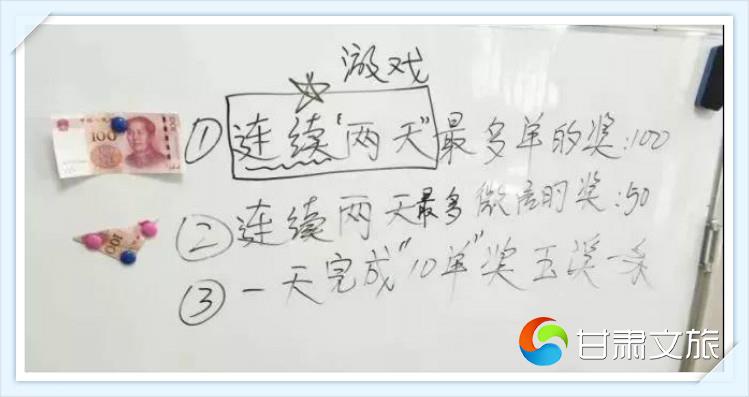 游戏
① 连续"两天"最多单的奖:100
② 连续两天最多微信的奖:50
③ 一天完成"10单"奖玉溪一条
100
100
甘肃文旅